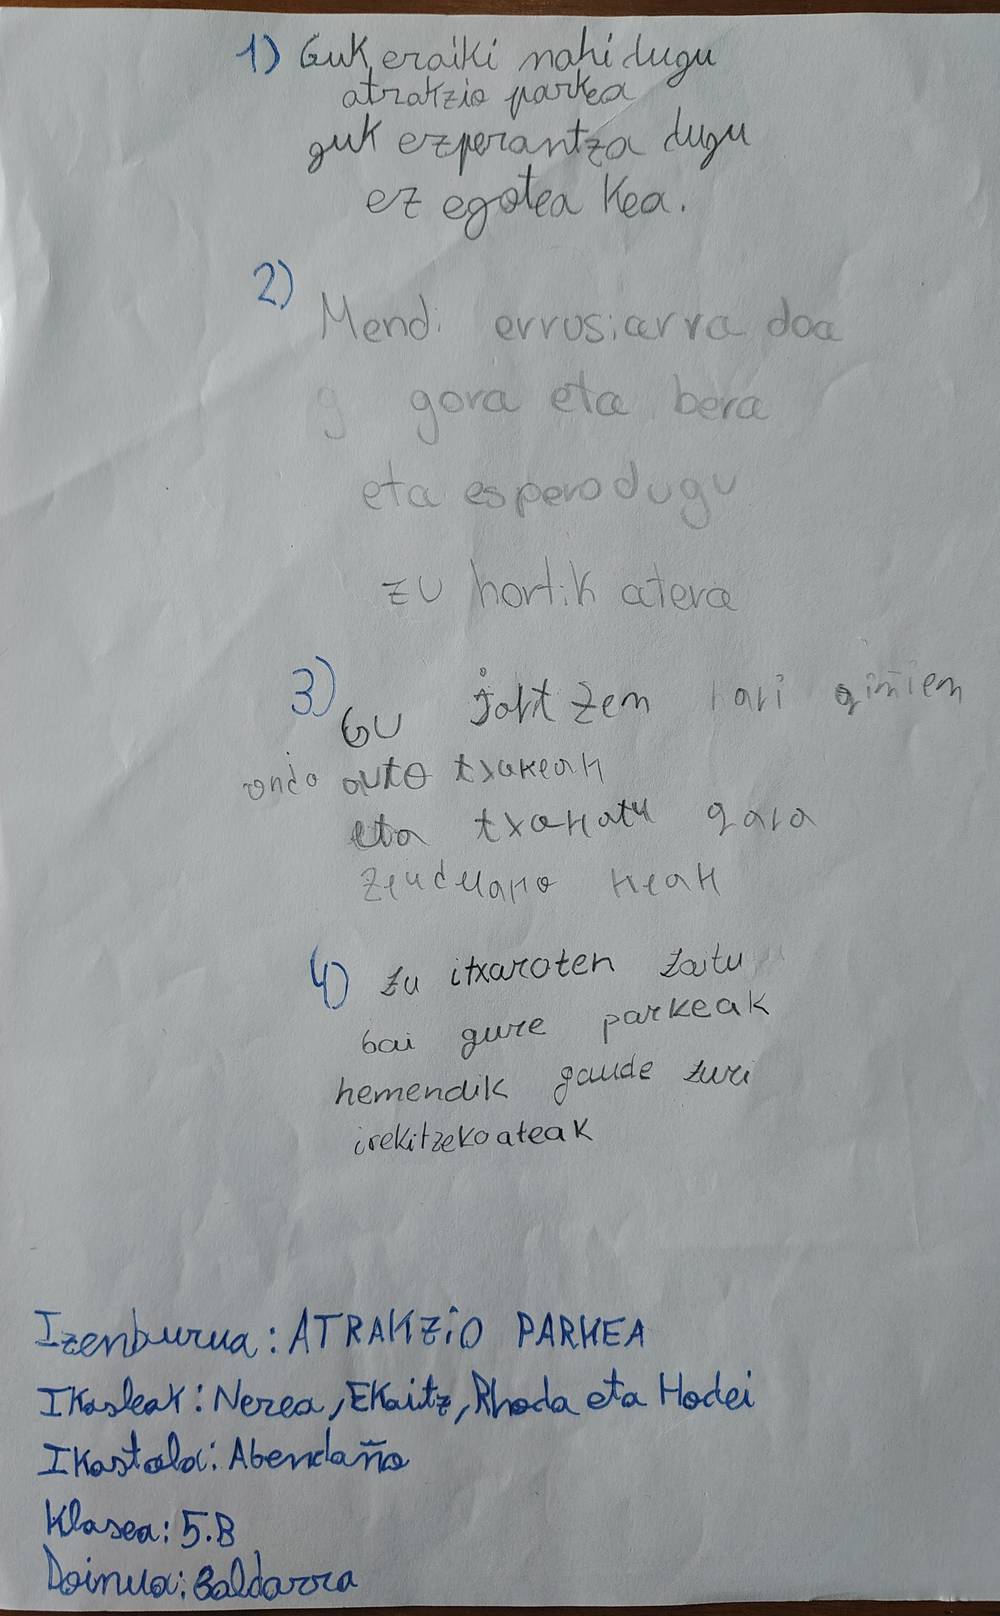 1) Guk eraiki nahi dugu
atrakzio parkea
guk ezperantza dugu
ez egotea kea.
2) Mendi errusiarra doa
g gora eta bera
eta espero dugu
zu hortik atera
3) Gu jartzen ari giñien
ondo auto txokeak
eta txokatu gara
zeudelako keak
4) zu itxaroten zaitu
bai gure parkeak
hemendik gaude zuri
irekitzeko ateak
Izenburua: ATRAKZiO PARKEA
Ikasleak: Nerea, Ekaitz, Rhoda eta Hodei
Ikastola: Abendaño
Klasea: 5.B
Doinua: Baldorra